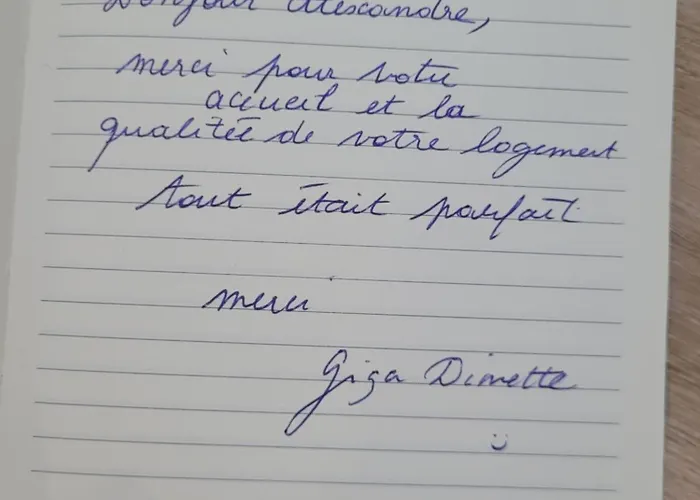 Bonjour Alexandre,
merci pour votre
accueil et la
qualitée de votre logement
tout était parfait
merci
Giga Dimette
:)